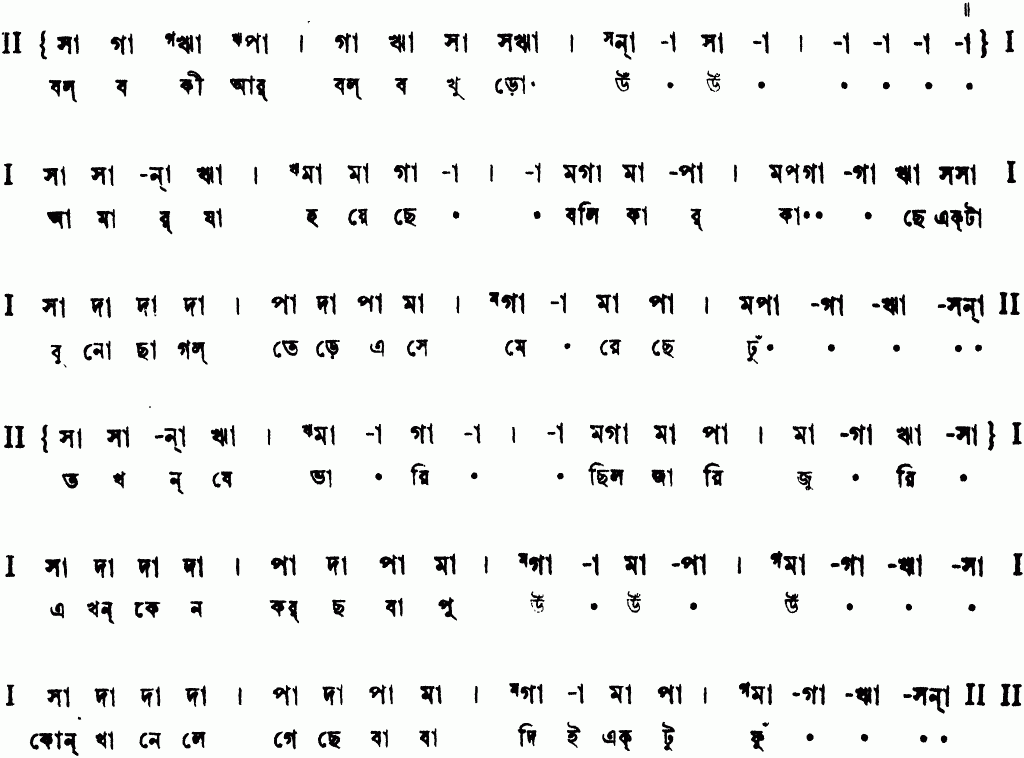 II { সা গা ᵍঋা ᵏপা । গা ঋা সা সঋা । ˢন্‌া -া সা -া । -া -া -া -া } I
বল্ ব কী আর্ বল্ ব খু ড়ো· উঁ • উঁ • • • • •
I সা সা -ন্‌া ঋা । ঋমা মা গা -া । -া মগা মা -পা । মপগা -গা ঋা সসা I
আ মা র্ যা হ য়ে ছে • • বলি কা র্ কা•• • ছে এক্‌টা
I সা দা দা দা । পা দা পা মা । মগা -া মা পা । মপা -গা -ঋা -সন্‌া II
বু নো ছা গল্ তে ড়ে এ সে মে • রে ছে ঢুঁ• • • ••
II { সা সা -ন্‌া ঋা । ঋমা -া গা -া । -া মগা মা পা । মা -গা ঋা -সা } I
ত খ ন্ যে ভা • রি • • ছিল জা রি জু • রি •
I সা দা দা দা । পা দা পা মা । মগা -া মা -পা । পমা -গা -ঋা -সা I
এ খন্ কে ন কর্ ছ বা পু উঁ • উঁ • উঁ • • •
I সা দা দা দা । পা দা পা মা । মগা -া মা পা । পমা -গা -ঋা -সন্‌া II II
কোন্ খা নে লে গে ছে বা বা দি ই এক্ টু ফুঁ • • ••